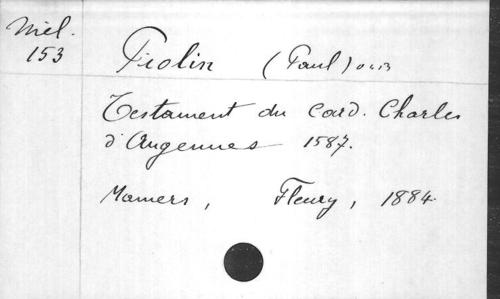 Miél.
153
Piolin (Paul) O.S.B.
Testament du Card. Charles
d'Angennes 1587.
Mamers, Fleury, 1884.